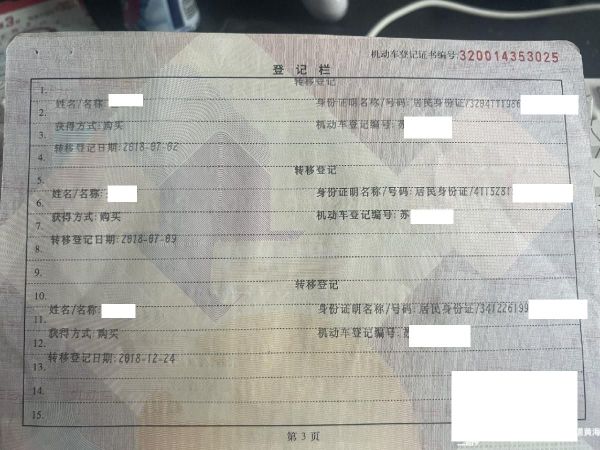 机动车登记证书编号:320014353025
登记栏
1. 转移登记
姓名/名称: 身份证明名称/号码:居民身份证/320411198
2.
3. 获得方式:购买 机动车登记编号:苏
4. 转移登记日期:2018-07-02
5. 转移登记
6. 姓名/名称: 身份证明名称/号码:居民身份证/411528
7. 获得方式:购买 机动车登记编号:苏
转移登记日期:2018-07-09
8.
9.
10. 转移登记
姓名/名称: 身份证明名称/号码:居民身份证/341226199
11.
12. 获得方式:购买 机动车登记编号:
13. 转移登记日期:2018-12-24
14.
15.
第3页
黄海